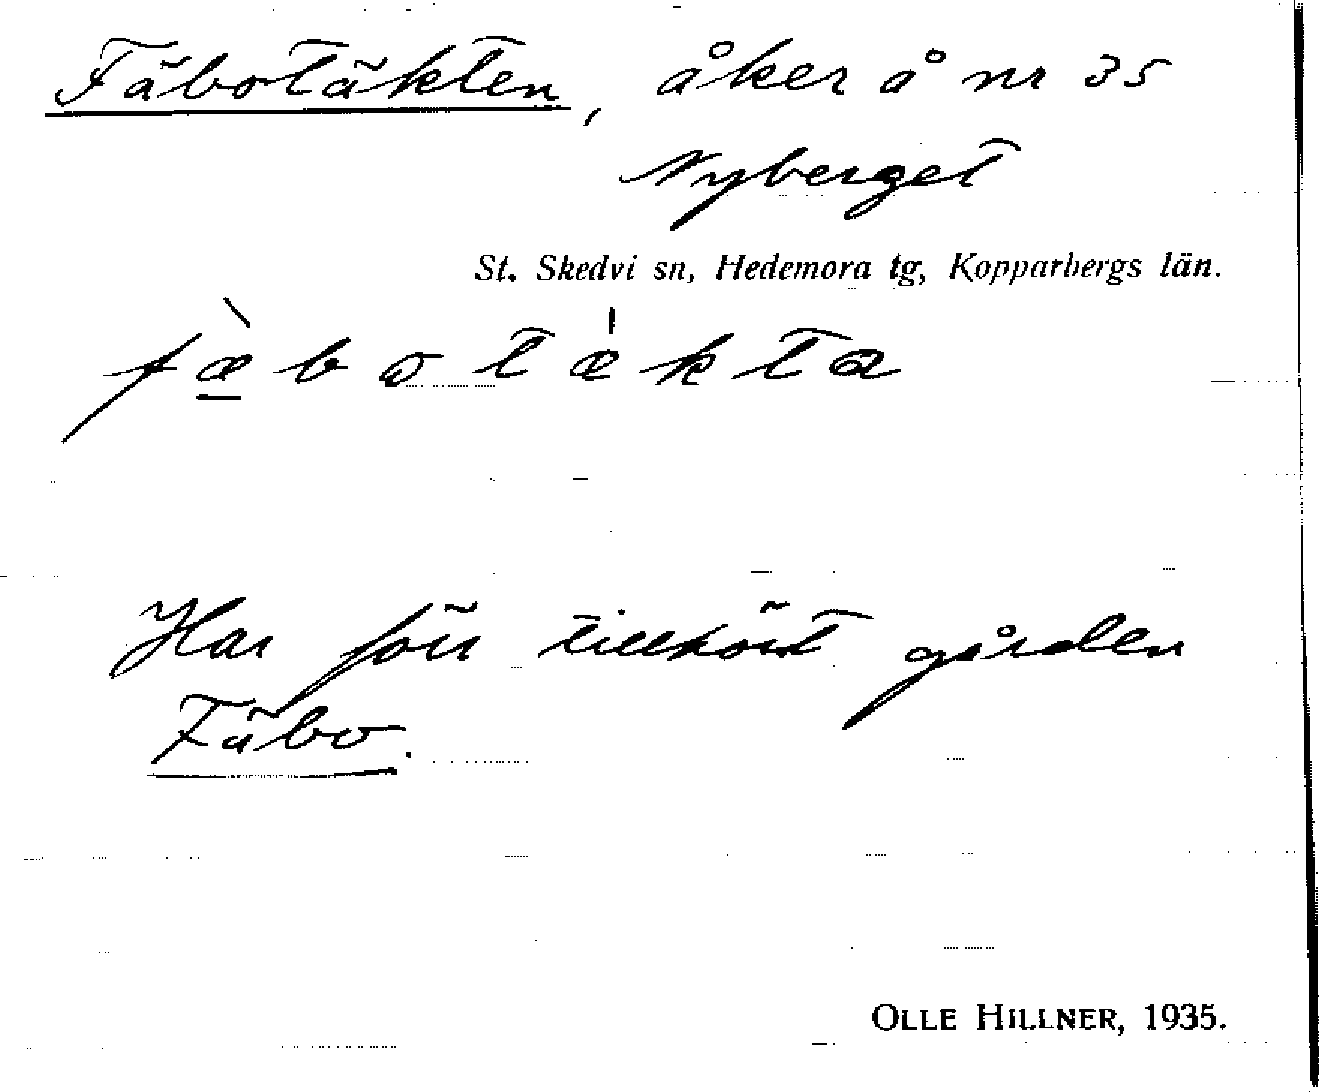 Fäbotäkten, åker å nr 35
Nyberget
St. Skedvi sn, Hedemora tg, Kopparbergs län.
fæ̀botækta
Har förr tillhört gården
Fäbo.
OLLE HILLNER, 1935.